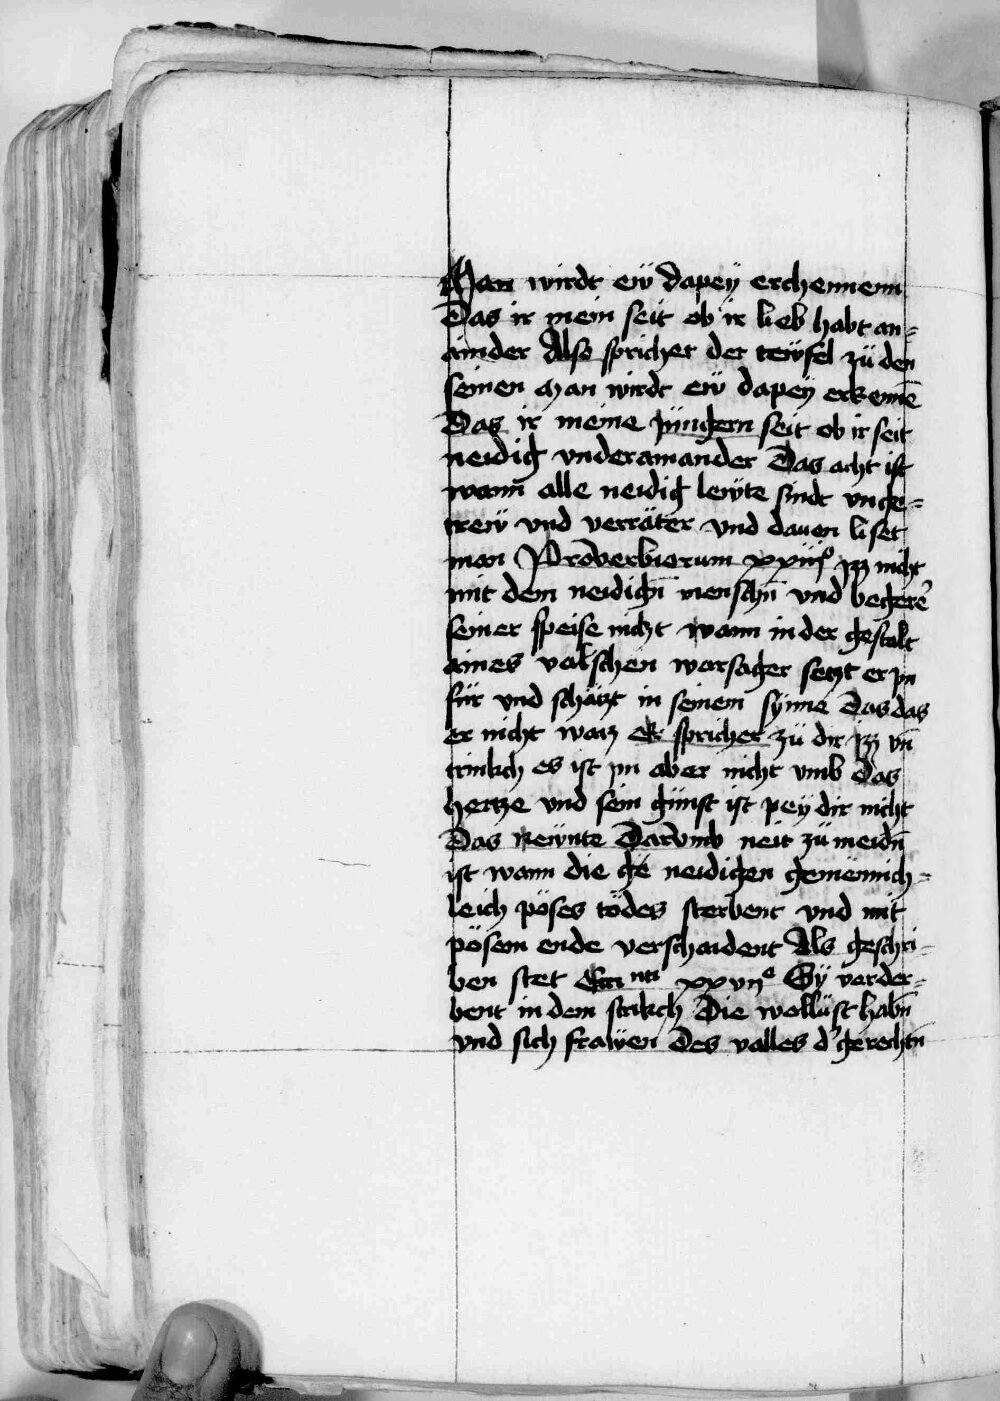 Man wirdt eẅ dapeÿ erchennenn
Das ir mein seit ob ir lieb habt an=
ainder Also sprichet der teẅfel zü den
seinen man wirdt eẅ dapeÿ erkennē
Das ir meine jüngern seit ob ir seit
neidig vnderainander Das acht ist
wann alle neidig leẅte sindt vnge=
treẅ vnd verräter vnd dauen liset
man Proverbiorum xxiij° Jzz nicht
mit dem neidigñ menschñ vnd begerē
seiner speise nicht wann in der gestalt
aines valschen warsager setzt er jn
für vnd schäczt in seinem synne das das
er nicht waiz Er sprichet zü dir jzz vñ
trinkch es ist jm aber nicht vmb das
hertze vnd sein günst ist peÿ dir nicht
Das Neẅnte Darumb neit zü meidñ
ist wann die ge neidigen gemainich=
leich pöses tödes sterbent vnd mit
pösem ende verschaident Als geschri=
ben stet xxvij° Sÿ verder=
bent in dem strikch Die wollüst habñ
vnd sich fraẅen Des valles d' gerechtñ